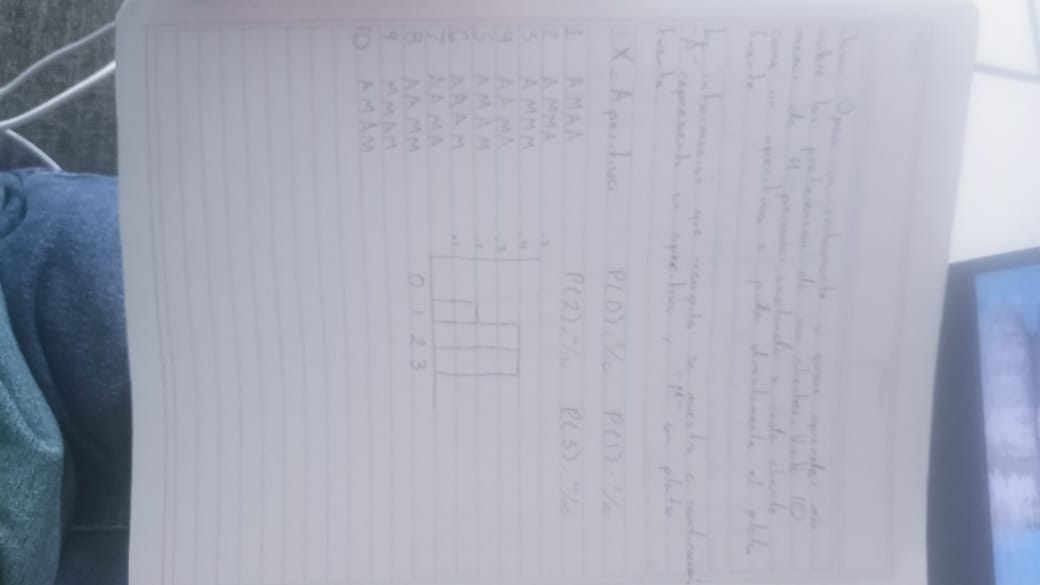 Opera un restaurante y quiere aprender más
sobre los de sus clientes. Visita 10
mesas de 4 personas anotando si cada cliente
come un aperitivo o pide directamente el plato
fuerte.
La información que recopila se muestra a continuación.
"A" representa un aperitivo y "M" un plato
fuerte.
X = Aperitivo P(0) = P(1) =
1 AMAA P(2) = P(3) =
2 AMMA
3 AMMM
4 AAMA
5 AMAM
6 AAAM
7 AAMA
8 AAMM
9 MMAM
10 AMAM
.4
.3
.2
.1
0 1 2 3